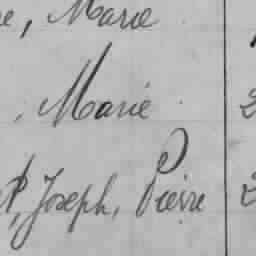 , Marie
, Marie
, Joseph, Pierre